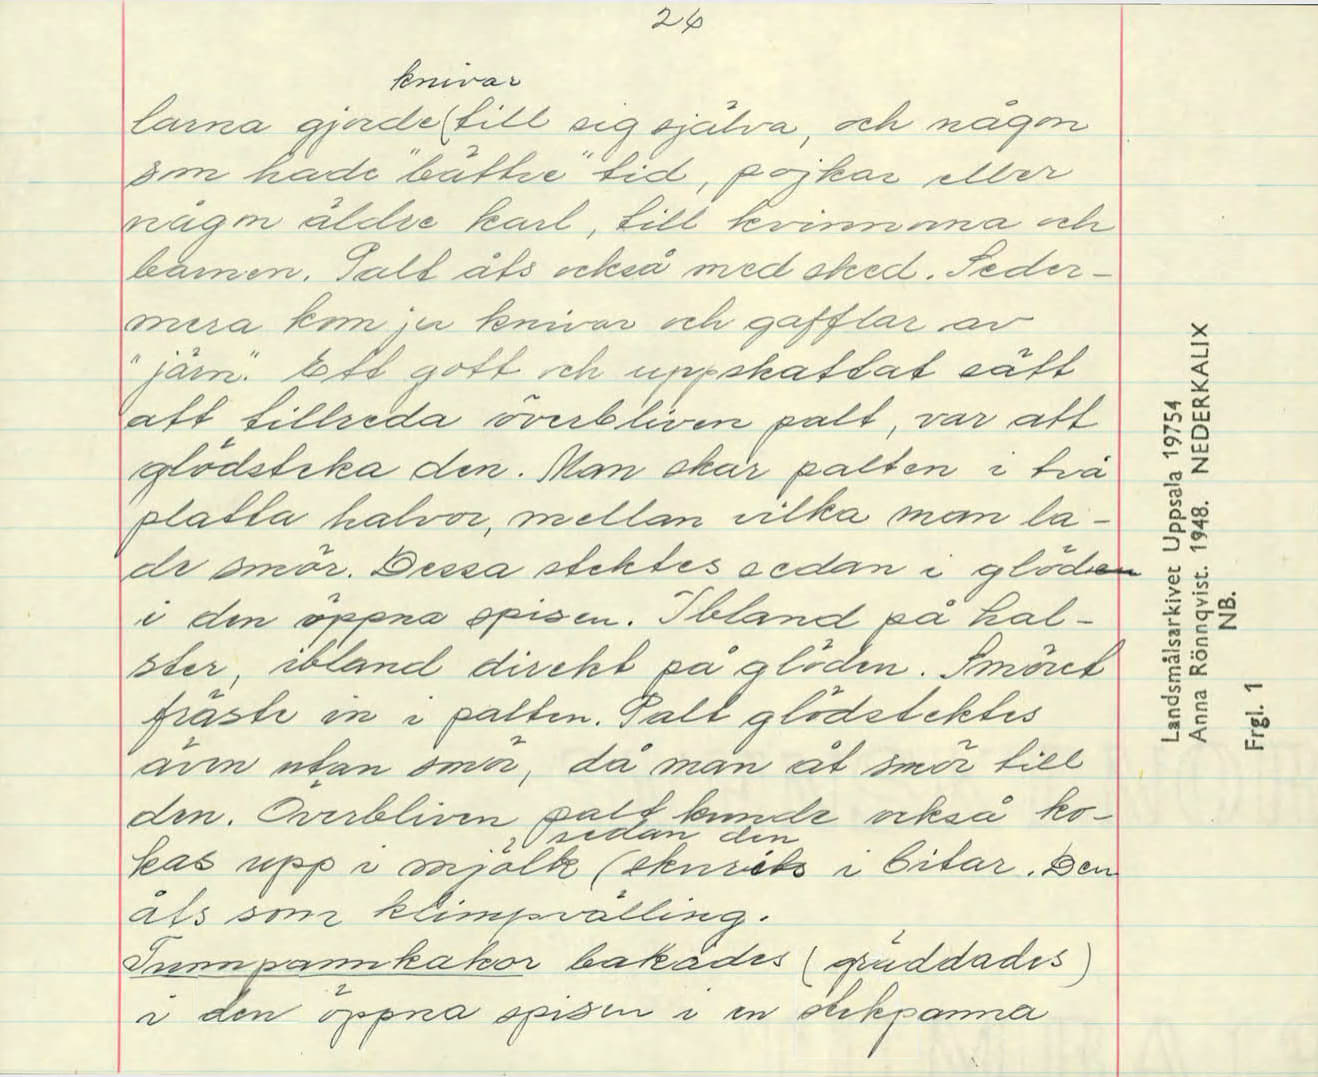 26
knivar
larna gjorde (till sig själva, och någon
som hade "bättre" tid, pojkar eller
någon äldre karl, till kvinnorna och
barnen. Palt åts också med sked. Seder-
mera kom ju knivar och gafflar av
"järn". Ett gott och uppskattat sätt
att tillreda överbliven palt, var att
glödsteka den. Man skar palten i två
platta halvor, mellan vilka man la-
de smör. Dessa stektes sedan i glöden
i den öppna spisen. Ibland på hal-
ster, ibland direkt på glöden. Smöret
fräste in i palten. Palt glödstektes
även utan smör, då man åt smör till
den. Överbliven palt kunde också ko-
sedan den
kas upp i mjölk (skurits i bitar. Den
åts som klimpvälling.
Tunnpannkakor bakades (gräddades)
i den öppna spisen i en stekpanna
Landsmålsarkivet Uppsala 19754
Anna Rönnqvist. 1948. NEDERKALIX
NB.
Frgl. 1